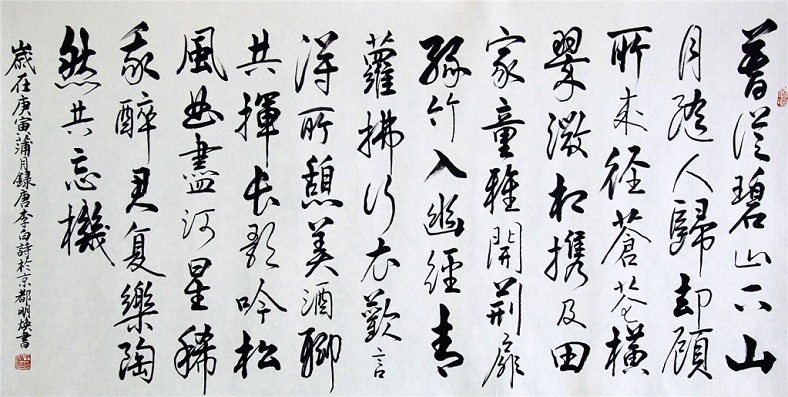 暮從碧山下山
月隨人歸却顧
所來径蒼蒼橫
翠微相携及田
家童稚開荊扉
綠竹入幽經青
蘿拂行衣歡言
得所憩美酒聊
共揮長歌吟松
風曲盡河星稀
我醉君复樂陶
然共忘機
歲在庚寅蒲月錄唐李白詩於京都明煥書